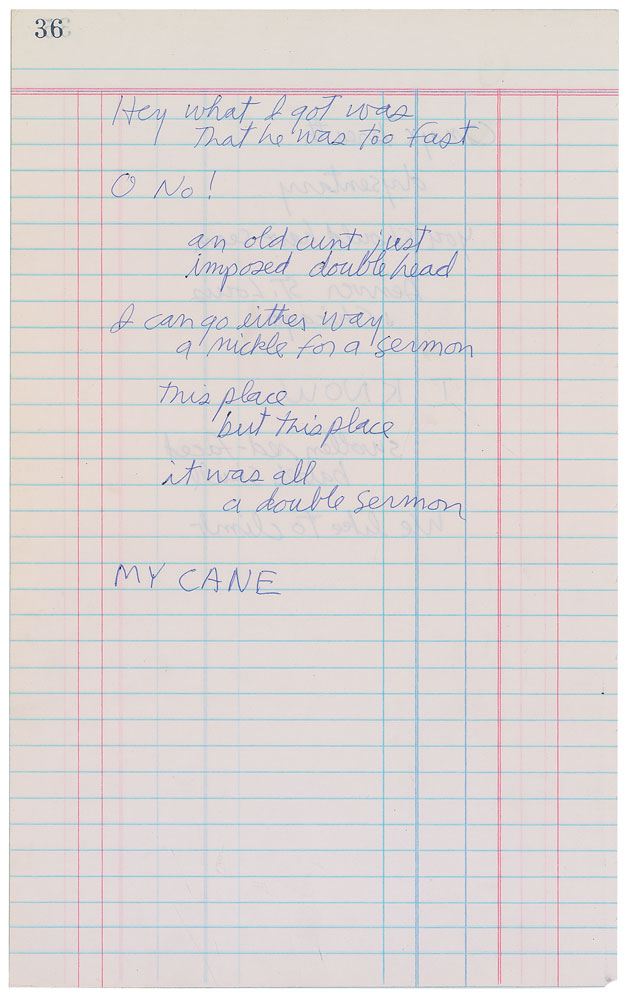 36
Hey what I got was
That he was too fast
O No!
an old cunt just
imposed double head
I can go either way
a nickle for a sermon
this place
but this place
it was all
a double sermon
MY CANE